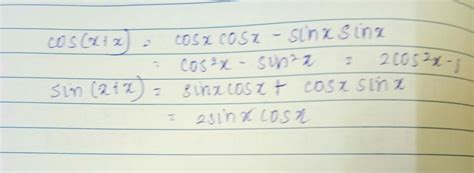 cos(x+x) = cosx cosx - sinx sinx
= cos²x - sin²x = 2cos²x-1
sin(x+x) = sinx cosx + cosx sinx
= 2sinx cosx